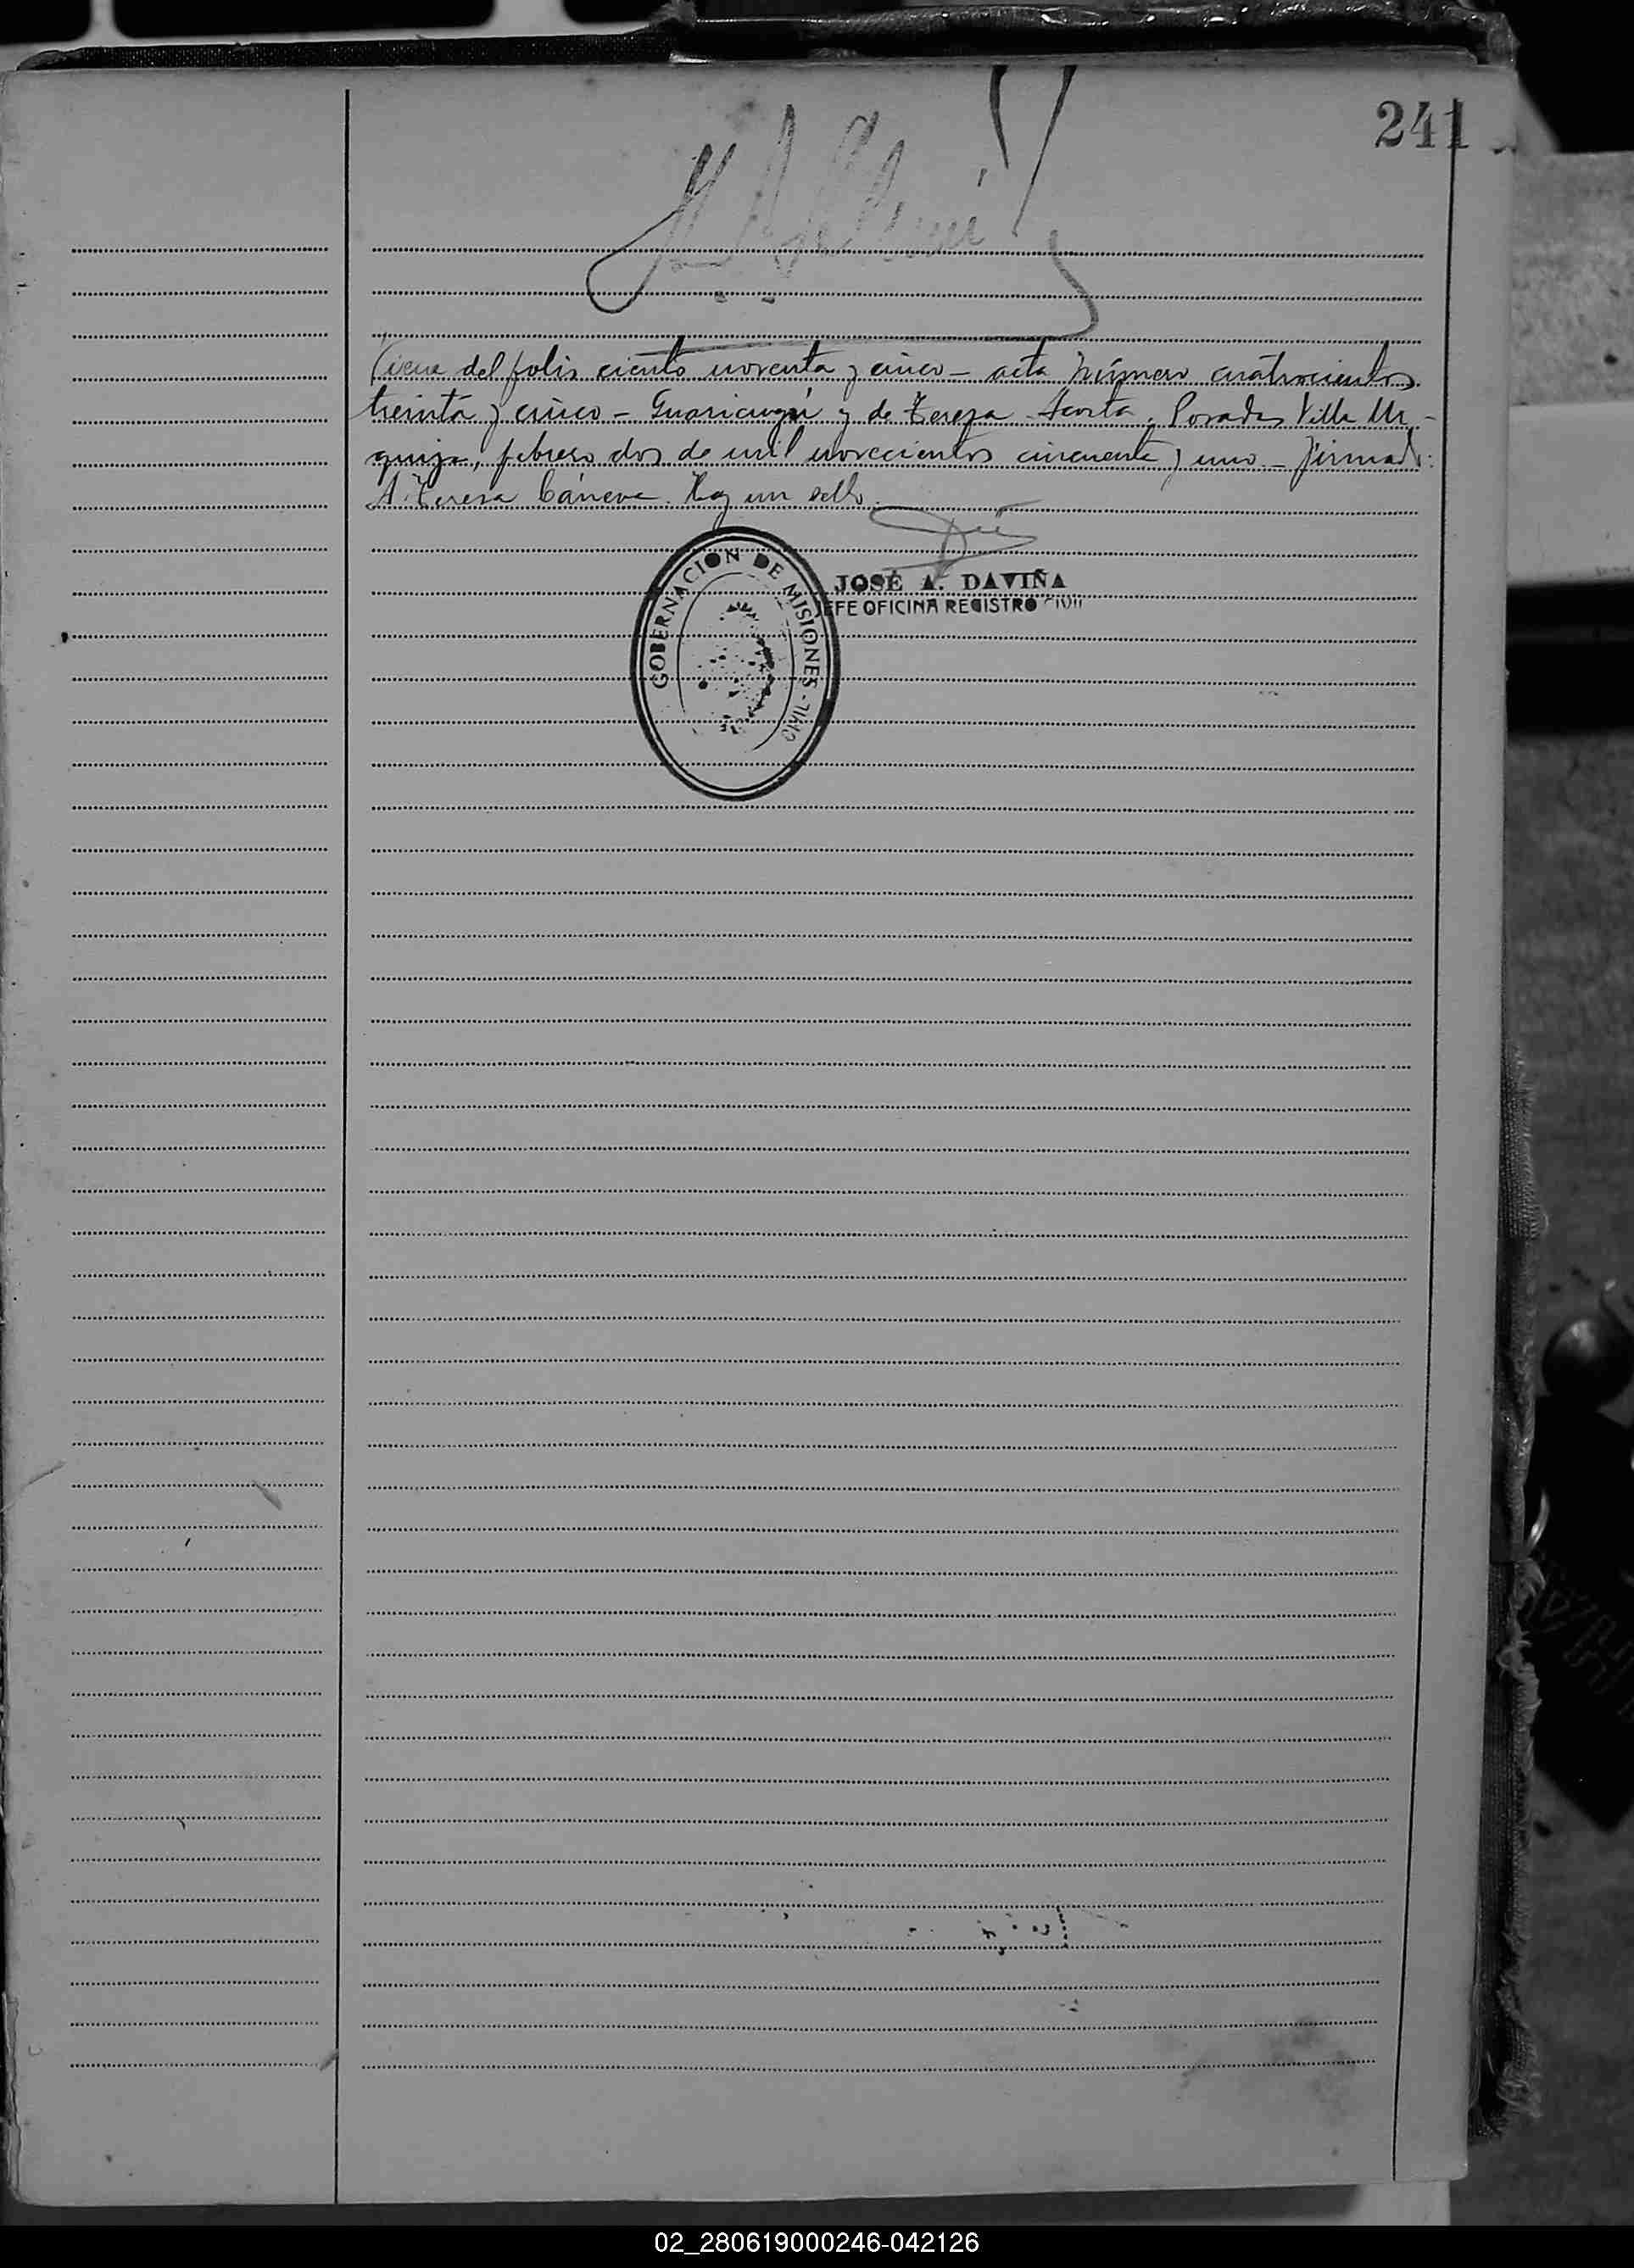 241
Viene del folio ciento noventa y cinco - acta número cuatrocientos
treinta y cinco - Guaricuyú y de Tereza Acosta. Posadas Villa Ur-
quiza, febrero dos de mil novecientos cincuenta y uno - Firmado:
A. Teresa Cáneva. Hay un sello.
GOBERNACIÓN DE MISIONES - CIVIL -
JOSÉ A. DAVIÑA
JEFE OFICINA REGISTRO CIVIL
02_280619000246-042126